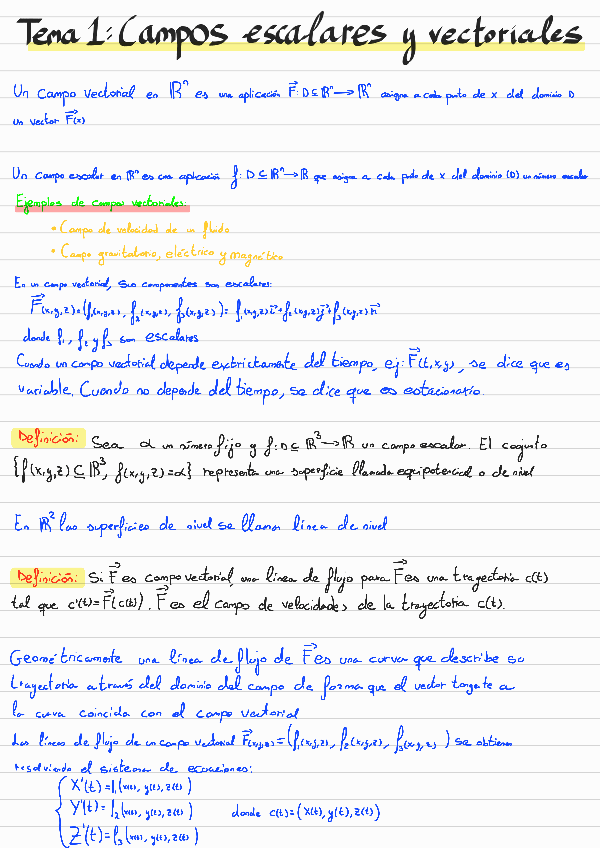 Tema 1: Campos escalares y vectoriales
Un campo vectorial en ℝⁿ es una aplicación F⃗: D⊆ℝⁿ→ℝⁿ asigna a cada punto de x del dominio D
un vector F⃗(x)
Un campo escalar en ℝⁿ es una aplicación f: D⊆ℝⁿ→ℝ que asigna a cada punto de x del dominio (D) un número escalar
Ejemplos de campos vectoriales:
• Campo de velocidad de un fluido
• Campo gravitatorio, eléctrico y magnético
En un campo vectorial, sus componentes son escalares:
F⃗(x,y,z)=(f₁(x,y,z), f₂(x,y,z), f₃(x,y,z))= f₁(x,y,z)i⃗+f₂(x,y,z)j⃗+f₃(x,y,z)k⃗
donde f₁, f₂ y f₃ son escalares
Cuando un campo vectorial depende esctrictamente del tiempo, ej: F⃗(t,x,y), se dice que es
variable. Cuando no depende del tiempo, se dice que es estacionario.
Definición: Sea α un número fijo y f: D⊆ℝ³→ℝ un campo escalar. El conjunto
{f(x,y,z)⊆ℝ³, f(x,y,z)=α} representa una superficie llamada equipotencial o de nivel
En ℝ² las superficies de nivel se llaman línea de nivel
Definición: Si F⃗ es campo vectorial, una línea de flujo para F⃗ es una trayectoria c(t)
tal que c'(t)=F⃗(c(t)). F⃗ es el campo de velocidades de la trayectoria c(t).
Geométricamente una línea de flujo de F⃗ es una curva que describe su
trayectoria a través del dominio del campo de forma que el vector tangente a
la curva coincida con el campo vectorial
Las líneas de flujo de un campo vectorial F⃗(x,y,z)=(f₁(x,y,z), f₂(x,y,z), f₃(x,y,z)) se obtienen
resolviendo el sistema de ecuaciones:
X'(t)=f₁(x(t), y(t), z(t))
Y'(t)=f₂(x(t), y(t), z(t)) donde c(t)=(x(t), y(t), z(t))
Z'(t)=f₃(x(t), y(t), z(t))